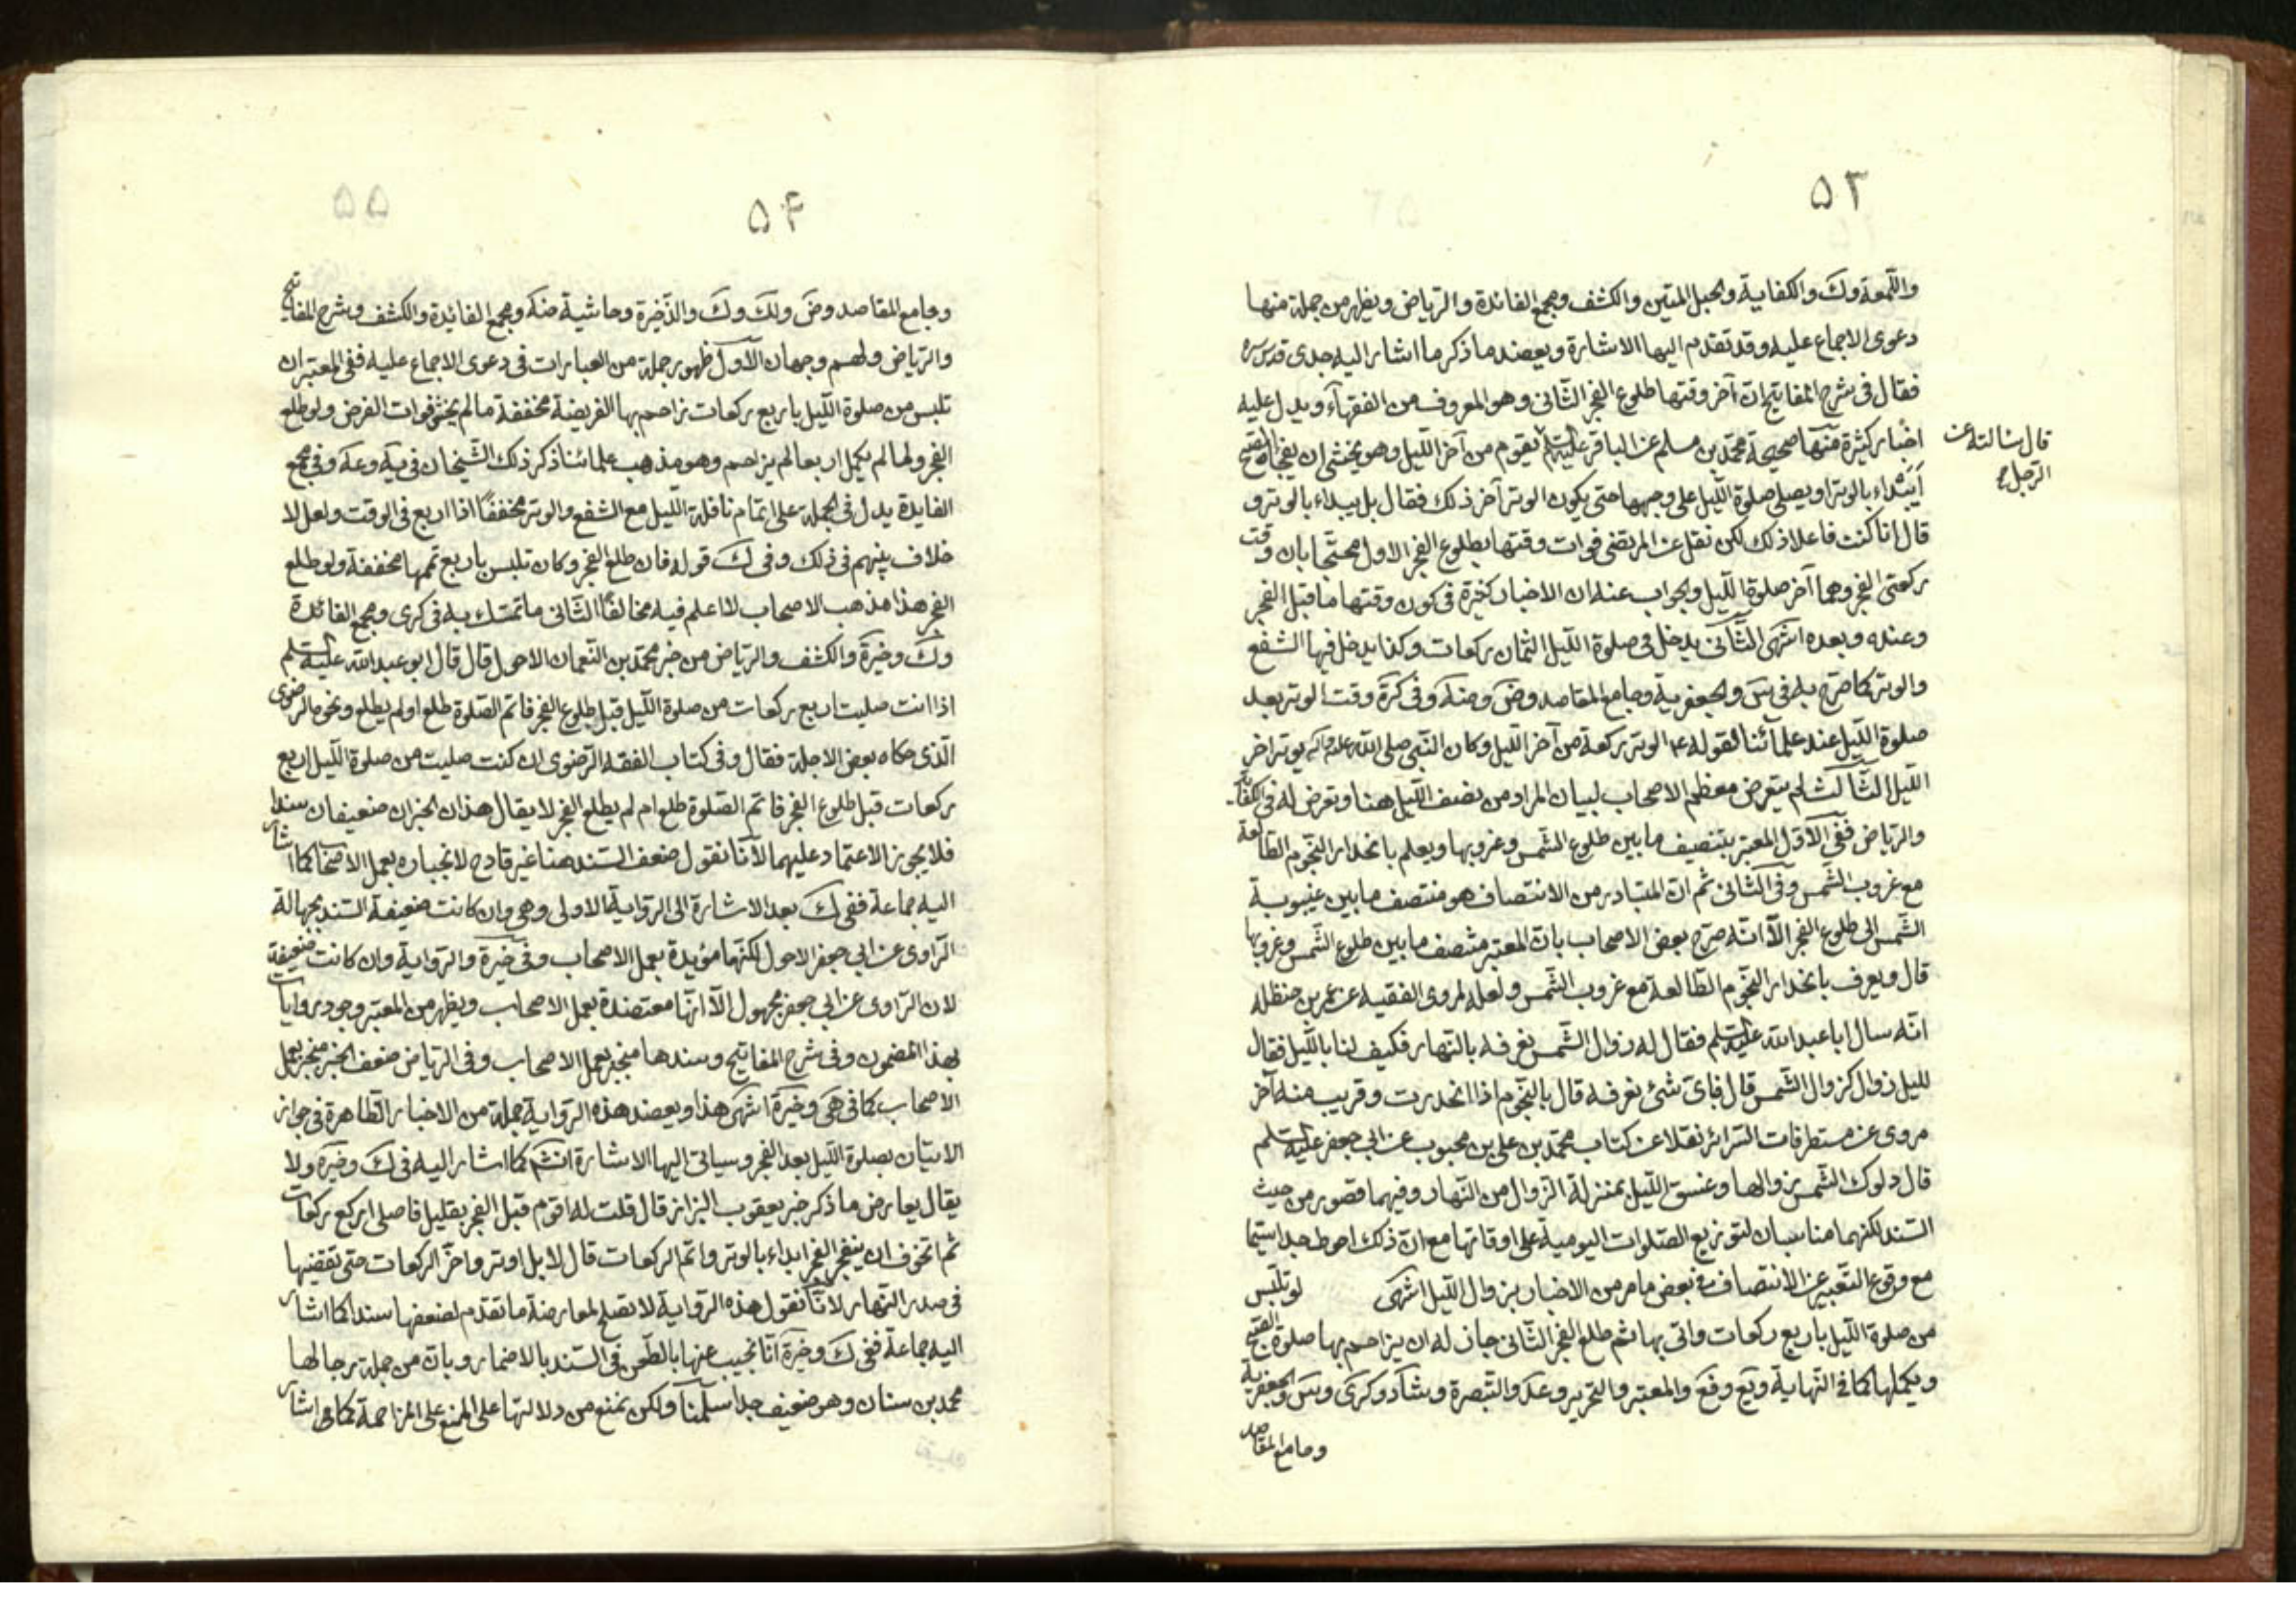 ٥٣
واللّمعة وك والكفاية والحبل المتين والكشف ومجمع الفائدة والرياض ويظهر من جملة منها
دعوى الاجماع عليه وقد تقدم اليها الاشارة ويعضد ما ذكر ما اشار اليه جدى قدس سره
فقال فى شرح المفاتيح ان آخر وقتها طلوع الفجر الثانى وهو المعروف من الفقهآء ويدل عليه
اخبار كثيرة منها صحيحة محمد بن مسلم عن الباقر عليه السلم يقوم من آخر الليل وهو يخشى ان يفجأه الصبح
قال سئالته عن
الرجل
أيبتداء بالوتر او يصلى صلوة الليل على وجهها حتى يكون الوتر آخر ذلك فقال بل يبداء بالوتر و
قال انا كنت فاعلا ذلك لكن نقل عن المرتضى فوات وقتها بطلوع الفجر الاول محتجّا بان وقت
ركعتى الفجر وهما آخر صلوة الليل والجواب عنه ان الاخبار كثيرة فى كون وقتها ما قبل الفجر
وعنده وبعده انتهى الثّانى يدخل فى صلوة الليل الثمان ركعات وكذا يدخل فيها الشفع
والوتر كما صرّح به فى س والجعفرية وجامع المقاصد وض وضه وفى كره وقت الوتر بعد
صلوة الليل عند علمآئنا لقوله ع الوتر ركعة من آخر الليل وكان النّبى صلى الله عليه وآله يوتر اخر
الليل الثّالث لم يتعرض معظم الاصحاب لبيان المراد من نصف الليل هنا وتعرض له فى الكفاية
والرياض ففى الاوّل المعتبر بتنصيف ما بين طلوع الشمس وغروبها ويعلم بانحدار النجوم الطالعة
مع غروب الشمس وفى الثانى ثم ان المتبادر من الانتصاف هو منتصف ما بين غيبوبة
الشّمس الى طلوع الفجر الّا انّه صرّح بعض الاصحاب بان المعتبر منتصف ما بين طلوع الشّمس وغروبها
قال ويعرف بانحدار النجوم الطالعة مع غروب الشّمس ولعله لمروى الفقيه عن عمر بن حنظله
انّه سال ابا عبد الله عليه السلم فقال له زوال الشّمس نعرفه بالنهار فكيف لنا بالليل فقال
لليل زوال كزوال الشّمس قال فباىّ شئ نعرفه قال بالنّجوم اذا انحدرت وقريب منه آخر
مروى عن مستطرفات السّرائر نقلا عن كتاب محمّد بن على بن محبوب عن ابى جعفر عليه السلم
قال دلوك الشّمس زوالها وغسق الليل بمنزلة الزّوال من النّهار وفيهما قصور من حيث
السّند لكنهما مناسبان لتوزيع الصّلوات اليومية على اوقاتها مع انّ ذلك احوط جدا سيّما
مع وقوع التّعبير عن الانتصاف فى بعض ما مر من الاخبار بزوال الليل انتهى لو تلبّس
من صلوة الليل باربع ركعات واتى بها ثم طلع الفجر الثانى جاز له ان يزاحم بها صلوة الصبح
ويكملها كما فى النهاية ويع وفع والمعتبر والتحرير وعد والتبصرة وشاد وكرى وس والجعفرية
وجامع المقاصد
٥٤
وجامع المقاصد وض ولك وك والذّخيرة وحاشية ضه ومجمع الفائدة والكشف وشرح المفاتيح
والرّياض ولهم وجهان الاوّل ظهور جملة من العبارات فى دعوى الاجماع عليه ففى المعتبر ان
تلبس من صلوة الليل باربع ركعات زاحم بها الفريضة مخففة ما لم يخش فوات الفرض ولو طلع
الفجر ولما لم يكمل اربعا لم يزاحم وهو مذهب علمائنا ذكر ذلك الشّيخان فى يه وعه وفى مجمع
الفايدة يدل فى الجملة على اتمام نافلة الليل مع الشفع والوتر مخففاً اذا اربع فى الوقت ولعل لا
خلاف بينهم فى ذلك وفى ك قوله فان طلع الفجر وكان تلبس باربع تممها مخففة ولو طلع
الفجر هذا مذهب الاصحاب لا اعلم فيه مخالفاً الثّانى ما تمسّك به فى كرى ومجمع الفائدة
وك وخيرة والكشف والرياض من خبر محمّد بن النّعمان الاحول قال قال ابو عبد الله عليه السلم
اذا انت صليت اربع ركعات من صلوة الليل قبل طلوع الفجر فاتم الصّلوة طلع او لم يطلع ونحوه الرضوى
الّذى حكاه بعض الاجلة فقال وفى كتاب الفقه الرّضوى ان كنت صليت من صلوة الليل اربع
ركعات قبل طلوع الفجر فاتم الصّلوة طلع ام لم يطلع الفجر لا يقال هذان الخبران ضعيفان سندا
فلا يجوز الاعتماد عليهما لانّا نقول ضعف السّند هنا غير قادح لانجباره بعمل الاصحاب كما اشار
اليه جماعة ففى ك بعد الاشارة الى الرّواية الاولى وهى وان كانت ضعيفة السّند بجهالة
الرّاوى عن ابى جعفر الاحول لكنّها مؤيدة بعمل الاصحاب وفى خيرة والرّواية وان كانت ضعيفة
لان الرّاوى عن ابى جعفر مجهول الّا انّها معتضدة بعمل الاصحاب ويظهر من المعتبر وجود روايات
بهذا المضمون وفى شرح المفاتيح وسندها منجبر بعمل الاصحاب وفى الرّياض ضعف الخبر منجبر بعمل
الاصحاب كما فى هى وخيرة انتهى هذا ويعضد هذه الرّواية جملة من الاخبار الظاهرة فى جواز
الاتيان بصلوة الليل بعد الفجر وسياتى اليها الاشارة انش كما اشار اليه فى ك وخيره ولا
يقال يعارض ما ذكر خبر يعقوب البزاز قال قلت له اقوم قبل الفجر بقليل فاصلى اربع ركعات
ثم اتخوف ان ينفجر الفجر ابداء بالوتر واتم الركعات قال لا بل اوتر واخّر الركعات حتى تقضيها
فى صدر النّهار لانّا نقول هذه الرّواية لا تصلح لمعارضة ما تقدم لضعفها سندا كما اشار
اليه جماعة ففى ك وخيرة انّا نجيب عنها بالطّعن فى السّند بالاضمار وبان من جملة رجالها
محمد بن سنان وهو ضعيف جدا سلّمنا ولكن نمنع من دلالتها على المنع على المزاحمة كما اشار